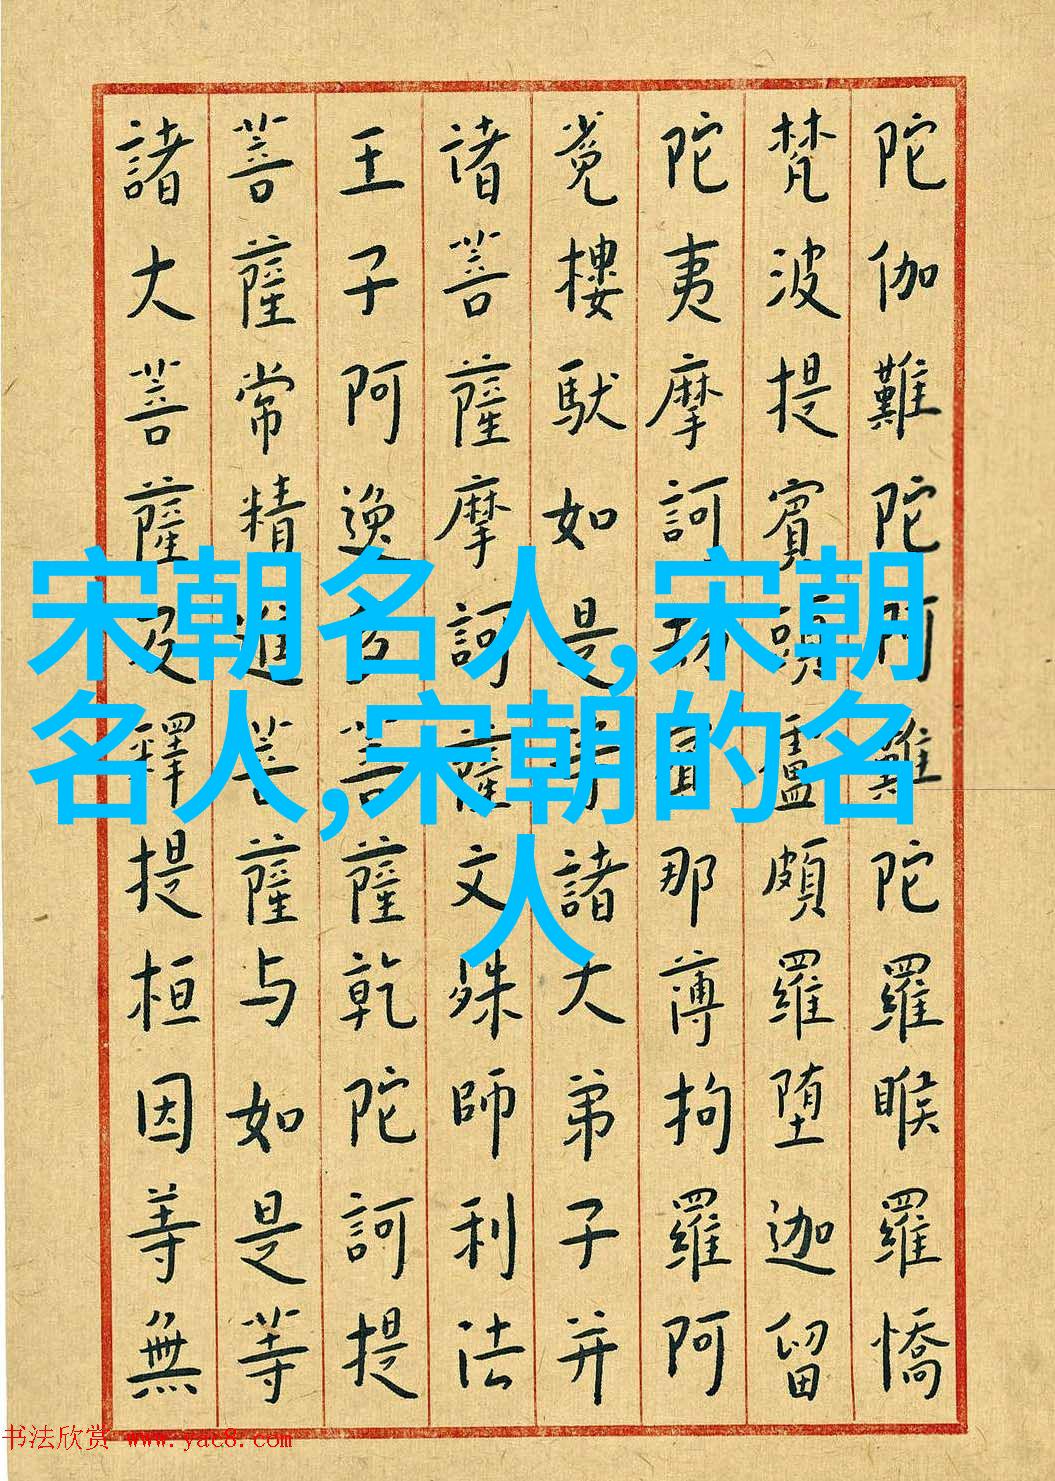 陀伽難陀阿難陀羅睺羅憍
梵波提賓頭盧頗羅堕迦留
陀夷摩訶那薄拘羅阿
樓馱如是諸大弟子并
诸菩薩摩訶薩文殊師利法
王子阿逸多菩薩乾陀訶提
菩薩常精進菩薩与如是等
諸大菩薩及釋提桓因等無
宋朝名人,宋朝
名人,宋朝的名
人
书法欣赏 www.yac8.com